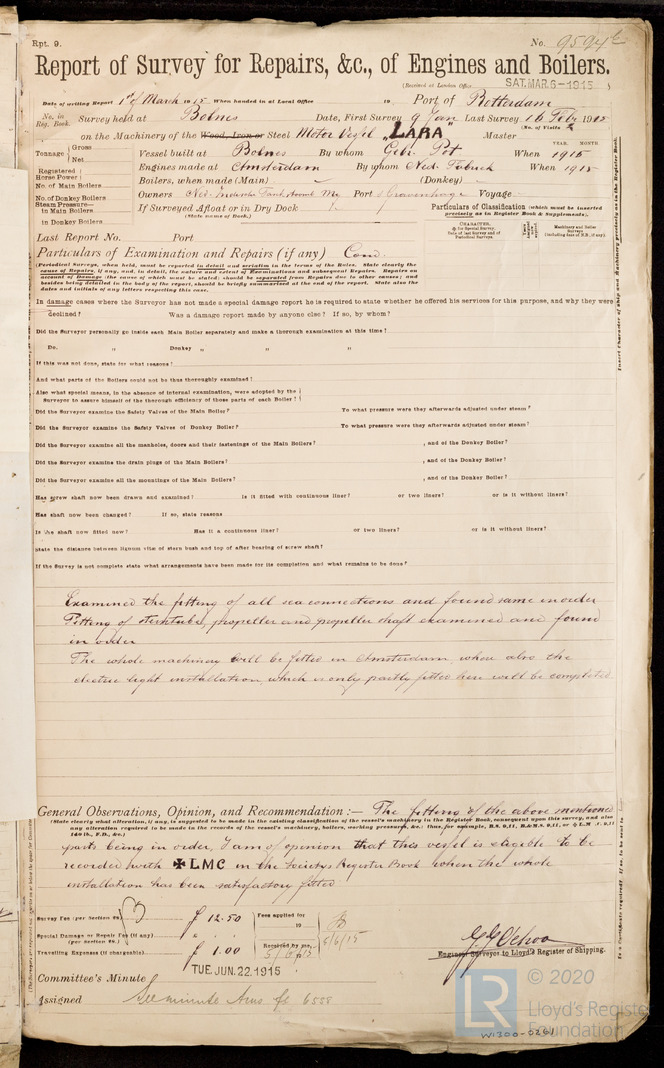 Rpt. 9.
No. 9594
Report of Survey for Repairs, &c., of Engines and Boilers.
(Received at London Office SAT. MAR. 6 - 1915
Date of writing Report 1st March 1915 When handed in at Local Office 19 Port of Rotterdam
No. in Reg. Book. Survey held at Bolnes Date, First Survey 9 Jan Last Survey 16 Feb 1915
(No. of Visits
on the Machinery of the Wood, Iron or Steel Motor Vessel "LARA" Master
Tonnage Gross Net
Vessel built at Bolnes By whom Gebr. Pot When 1915
YEAR. MONTH.
Registered Horse Power
Engines made at Amsterdam By whom Ned. Fabriek When 1915
No. of Main Boilers
Boilers, when made (Main) (Donkey)
No. of Donkey Boilers
Owners Port s'Gravenhage Voyage
Steam Pressure— in Main Boilers
If Surveyed Afloat or in Dry Dock
(State name of Dock.)
Particulars of Classification (which must be inserted precisely as in Register Book & Supplements).
in Donkey Boilers
Last Report No. Port
Particulars of Examination and Repairs (if any) Cond.
(Periodical Surveys, when held, must be reported in detail and seriatim in the terms of the Rules. State clearly the
cause of Repairs, if any, and, in detail, the nature and extent of Examinations and subsequent Repairs. Repairs on
account of Damage (the cause of which must be stated) should be separated from Repairs due to other causes; and
besides being detailed in the body of the report, should be briefly summarised at the end of the report. State also the
dates and initials of any letters respecting this case.
In damage cases where the Surveyor has not made a special damage report he is required to state whether he offered his services for this purpose, and why they were
declined? Was a damage report made by anyone else? If so, by whom?
Did the Surveyor personally go inside each Main Boiler separately and make a thorough examination at this time?
Do. „ Donkey „ „ „
If this was not done, state for what reasons?
And what parts of the Boilers could not be thus thoroughly examined?
Also what special means, in the absence of internal examination, were adopted by the
Surveyor to assure himself of the thorough efficiency of those parts of each Boiler?
Did the Surveyor examine the Safety Valves of the Main Boiler? To what pressure were they afterwards adjusted under steam?
Did the Surveyor examine the Safety Valves of Donkey Boiler? To what pressure were they afterwards adjusted under steam?
Did the Surveyor examine all the manholes, doors and their fastenings of the Main Boilers? , and of the Donkey Boiler?
Did the Surveyor examine the drain plugs of the Main Boilers? , and of the Donkey Boiler?
Did the Surveyor examine all the mountings of the Main Boilers? , and of the Donkey Boiler?
Has screw shaft now been drawn and examined? Is it fitted with continuous liner? or two liners? or is it without liners?
Has shaft now been changed? If so, state reasons
Is the shaft now fitted new? Has it a continuous liner? or two liners? or is it without liners?
State the distance between lignum vitæ of stern bush and top of after bearing of screw shaft?
If the Survey is not complete state what arrangements have been made for its completion and what remains to be done?
Examined the fitting of all seaconnections and found same in order
Fitting of sterntube, propeller and propeller shaft examined and found
in order
The whole machinery will be fitted in Amsterdam, where also the
electric light installation, which is only partly fitted here will be completed
General Observations, Opinion, and Recommendation :— The fitting of the above mentioned
(State clearly what alteration, if any, is suggested to be made in the existing classification of the vessel's machinery in the Register Book, consequent upon this survey, and also
any alteration required to be made in the records of the vessel's machinery, boilers, working pressure, &c.: thus, for example, B.S. 9,11, B.&M.S. 9,11, or ✠L.M.C. 9,11
140 lb., F.D., &c.)
parts being in order, I am of opinion that this vessel is eligible to be
recorded with ✠ LMC in the Society's Register Book when the whole
installation has been satisfactory fitted
Survey Fee (per Section £ 12.50 Fees applied for 19
Special Damage or Repair Fee (if any) (per Section 28.)
5/6/15
Travelling Expenses (if chargeable) £ 1.00 Received by me, 5/6/15
Engineer Surveyor to Lloyd's Register of Shipping.
Committee's Minute TUE. JUN. 22. 1915
Assigned See minute Ams fe 6558
LR
© 2020
Lloyd's Register
Foundation
W1300-0261